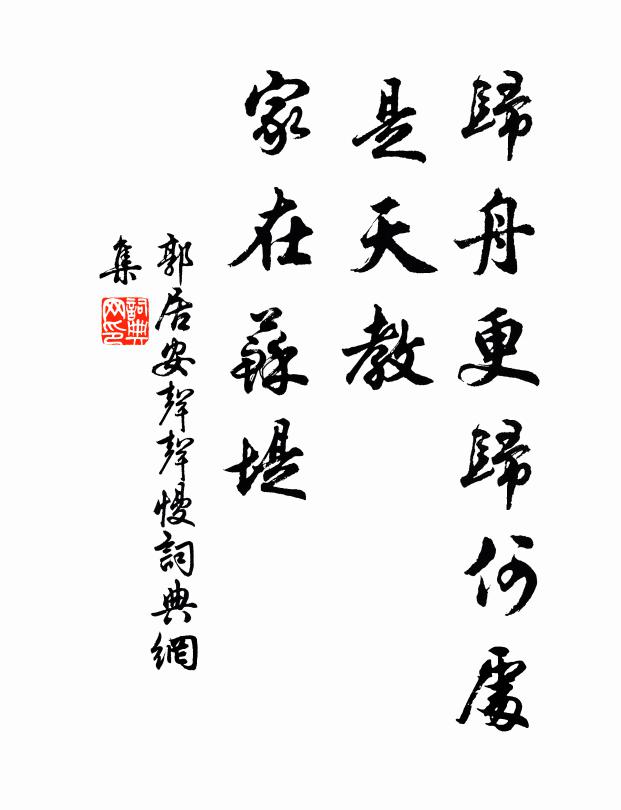 歸舟更歸何處
是天教
家在蘇堤
郭居安聲聲慢詞典網
集
詞典
网印